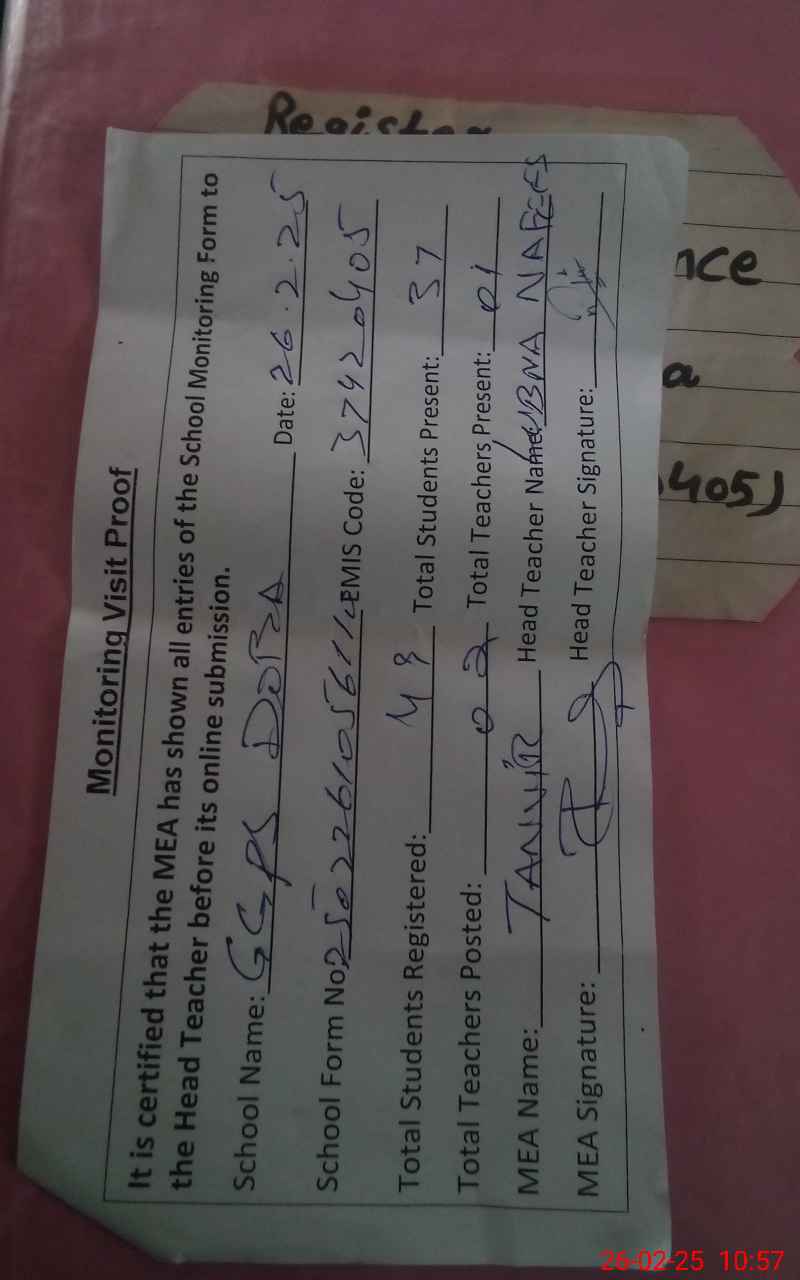 Register
nce
a
405)
Monitoring Visit Proof
It is certified that the MEA has shown all entries of the School Monitoring Form to
the Head Teacher before its online submission.
School Name: GGPS DOBA Date: 26.2.25
School Form No: EMIS Code: 37420405
Total Students Registered: 48 Total Students Present: 37
Total Teachers Posted: 02 Total Teachers Present: 01
MEA Name: TANVIR Head Teacher Name: LUBNA NAFEES
MEA Signature: Head Teacher Signature:
26-02-25 10:57